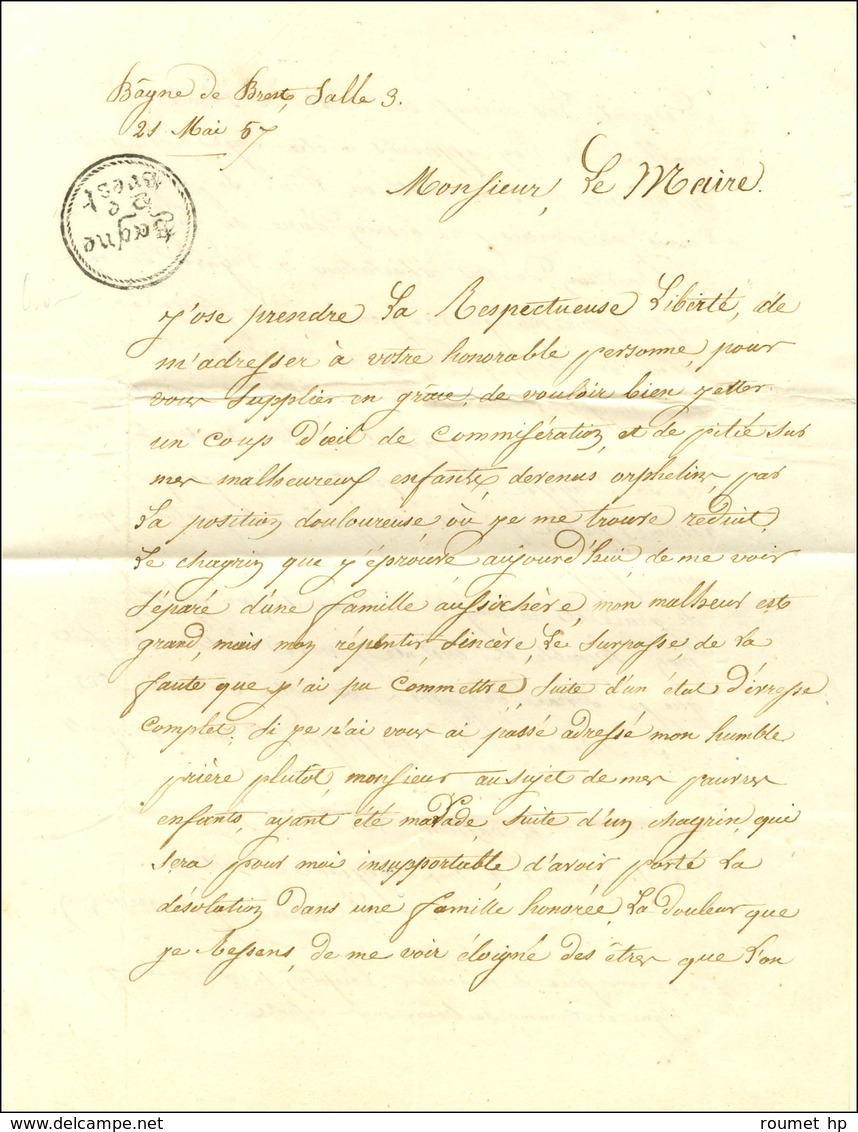 Bâgne de Brest, Salle 3.
21 Mai 57
Bagne
de
Brest
Monsieur, Le Maire.
J'ose prendre La Respectueuse Liberté, de
m'adresser à votre honorable personne, pour
vous Supplier en grâce, de vouloir bien jetter
un coup d'œil de commisération, et de pitié sur
mes malheureux enfants, devenus orphelins, par
La position douloureuse où je me trouve réduit,
Le chagrin que j'éprouve aujourd'hui, de me voir
Séparé d'une famille aussi chère, mon malheur est
grand, mais mon répentir Sincère, Le Surpasse, de La
faute que j'ai pu commettre, Suite d'un état d'ivresse
complet, Si je n'ai vous ai passé adressé mon humble
prière plutôt monsieur au sujet de mes pauvres
enfants, ayant été malade Suite d'un chagrin, qui
Sera pour moi insupportable d'avoir porté La
désolation dans une famille honorée, La douleur que
je Ressens, de me voir éloigné des êtres que L'on
roumet hp